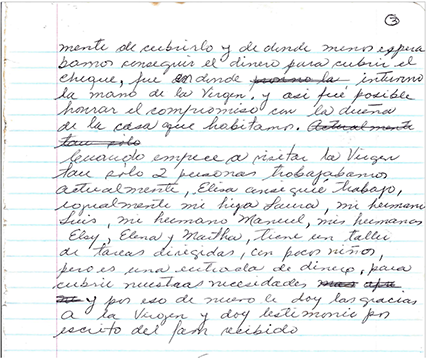 3
mente de cubrirlo y de donde menos espera
bamos conseguir el dinero para cubrir el
cheque, fue en donde intervino
la mano de la Virgen, y así fué posible
honrar el compromiso con la dueña
de la casa que habitamos. Actualmente
tan solo
Cuando empece a visitar la Virgen
tan solo 2 personas trabajabamos
actualmente, Elisa consiguió trabajo,
igualmente mi hija Laura, mi hermano
Luis, mi hermano Manuel, mis hermanas
Elsy, Elena y Martha, tiene un taller
de tareas dirigidas, con pocos niños,
pero es una entrada de dinero, para
cubrir nuestras necesidades
y por eso de nuevo le doy las gracias
a la Virgen y doy testimonio por
escrito del favor recibido